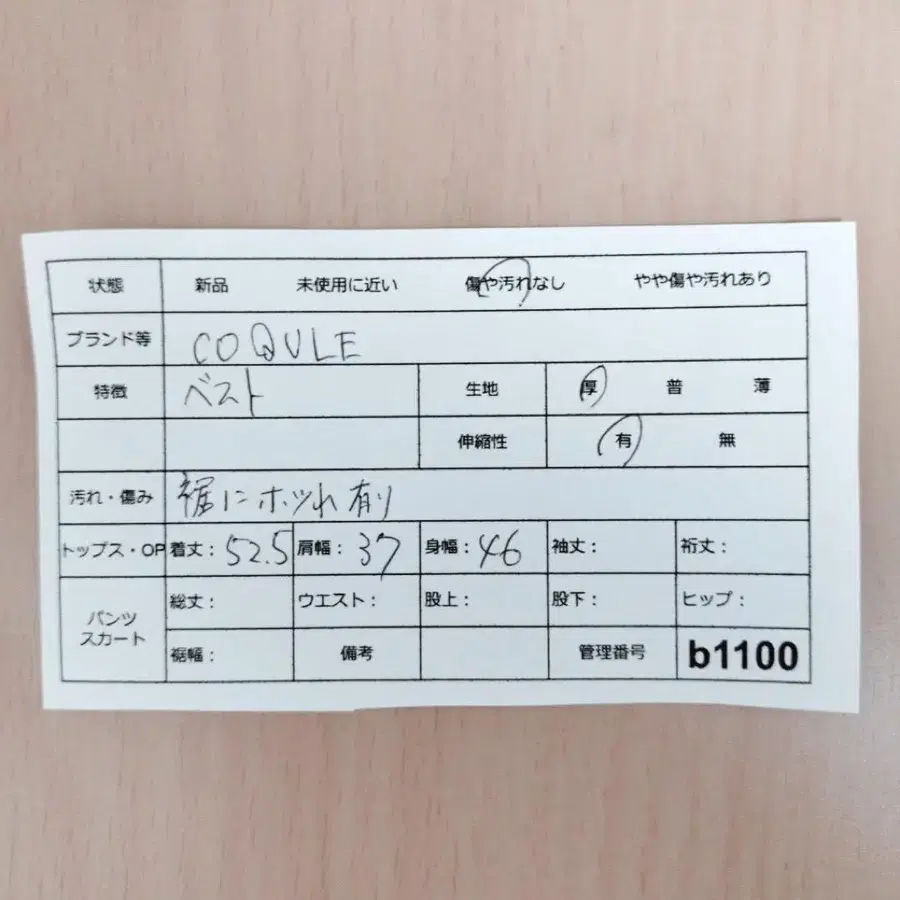 状態 新品 未使用に近い 傷や汚れなし やや傷や汚れあり
ブランド等 COQULE
特徴 ベスト 生地 厚 普 薄
伸縮性 有 無
汚れ・傷み 裾にホツれ有り
トップス・OP 着丈: 52.5 肩幅: 37 身幅: 46 袖丈: 裄丈:
パンツ スカート 総丈: ウエスト: 股上: 股下: ヒップ:
裾幅: 備考 管理番号 b1100